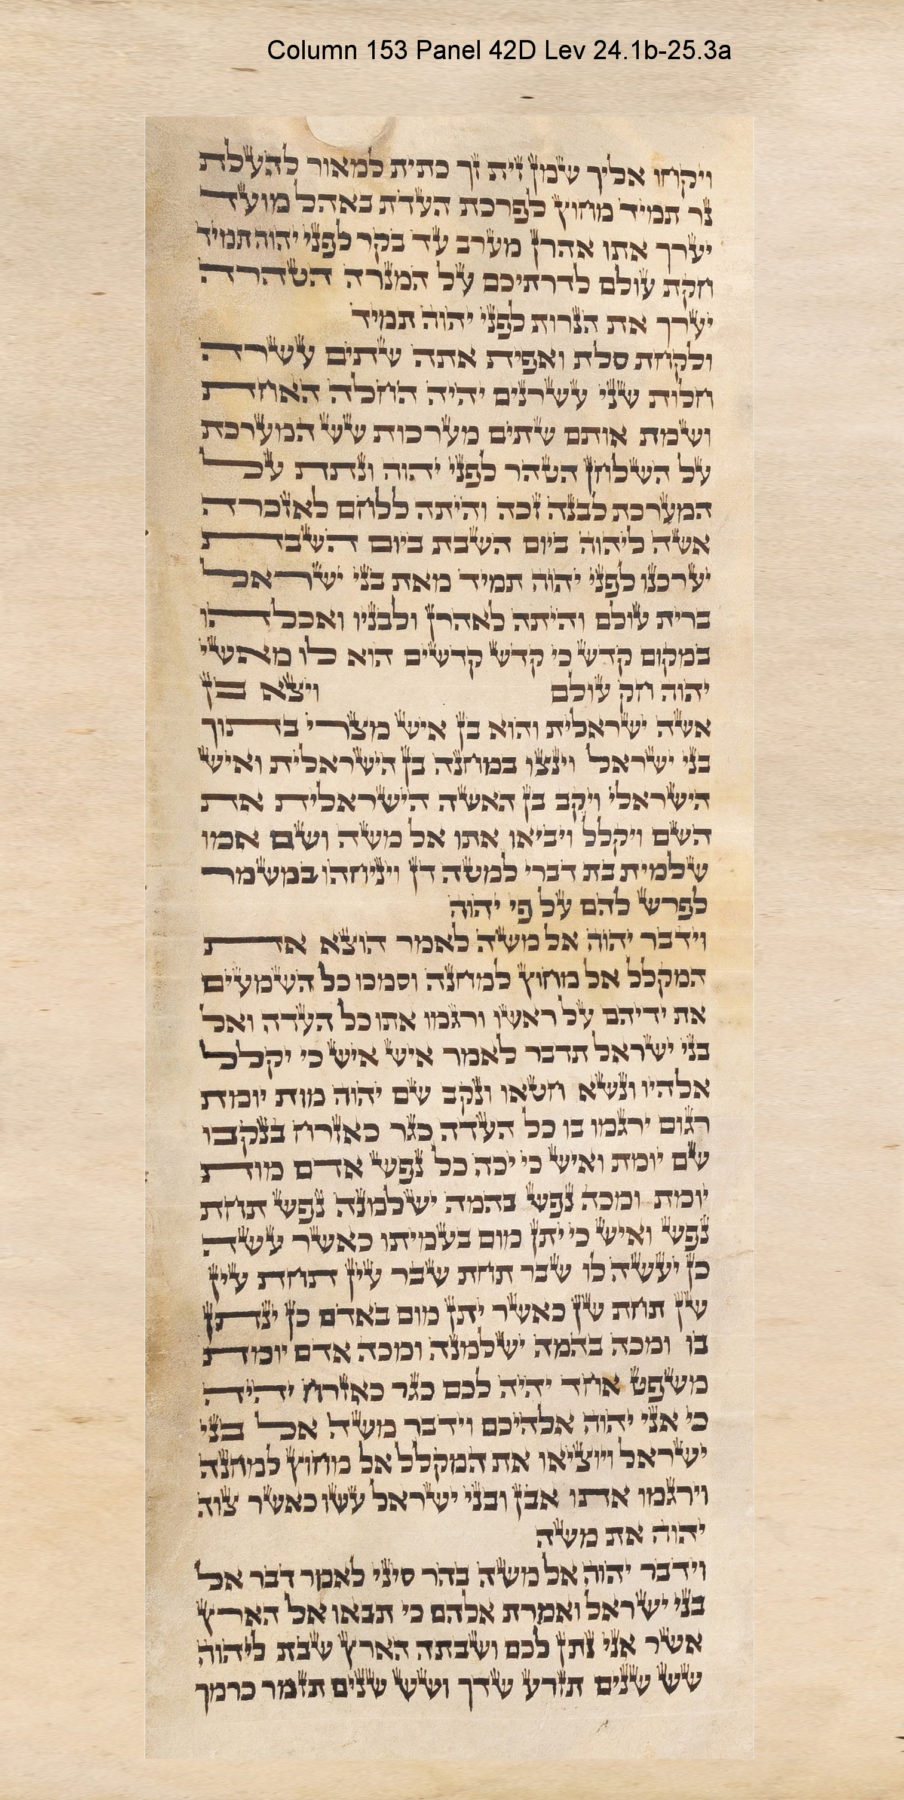 Column 153 Panel 42D Lev 24.1b-25.3a
ויקחו אליך שמן זית זך כתית למאור להעלת
נר תמיד מחוץ לפרכת העדת באהל מועד
יערך אתו אהרן מערב עד בקר לפני יהוה תמיד
חקת עולם לדרתיכם על המנרה הטהרה
יערך את הנרות לפני יהוה תמיד
ולקחת סלת ואפית אתה שתים עשרה
חלות שני עשרנים יהיה החלה האחת
ושמת אותם שתים מערכות שש המערכת
על השלחן הטהר לפני יהוה ונתת על
המערכת לבנה זכה והיתה ללחם לאזכרה
אשה ליהוה ביום השבת ביום השבת
יערכנו לפני יהוה תמיד מאת בני ישראל
ברית עולם והיתה לאהרן ולבניו ואכלהו
במקום קדש כי קדש קדשים הוא לו מאשי
יהוה חק עולם ויצא בן
אשה ישראלית והוא בן איש מצרי בתוך
בני ישראל וינצו במחנה בן הישראלית ואיש
הישראלי ויקב בן האשה הישראלית את
השם ויקלל ויביאו אתו אל משה ושם אמו
שלמית בת דברי למטה דן ויניחהו במשמר
לפרש להם על פי יהוה
וידבר יהוה אל משה לאמר הוצא את
המקלל אל מחוץ למחנה וסמכו כל השמעים
את ידיהם על ראשו ורגמו אתו כל העדה ואל
בני ישראל תדבר לאמר איש איש כי יקלל
אלהיו ונשא חטאו ונקב שם יהוה מות יומת
רגום ירגמו בו כל העדה כגר כאזרח בנקבו
שם יומת ואיש כי יכה כל נפש אדם מות
יומת ומכה נפש בהמה ישלמנה נפש תחת
נפש ואיש כי יתן מום בעמיתו כאשר עשה
כן יעשה לו שבר תחת שבר עין תחת עין
שן תחת שן כאשר יתן מום באדם כן ינתן
בו ומכה בהמה ישלמנה ומכה אדם יומת
משפט אחד יהיה לכם כגר כאזרח יהיה
כי אני יהוה אלהיכם וידבר משה אל בני
ישראל ויוציאו את המקלל אל מחוץ למחנה
וירגמו אתו אבן ובני ישראל עשו כאשר צוה
יהוה את משה
וידבר יהוה אל משה בהר סיני לאמר דבר אל
בני ישראל ואמרת אלהם כי תבאו אל הארץ
אשר אני נתן לכם ושבתה הארץ שבת ליהוה
שש שנים תזרע שדך ושש שנים תזמר כרמך